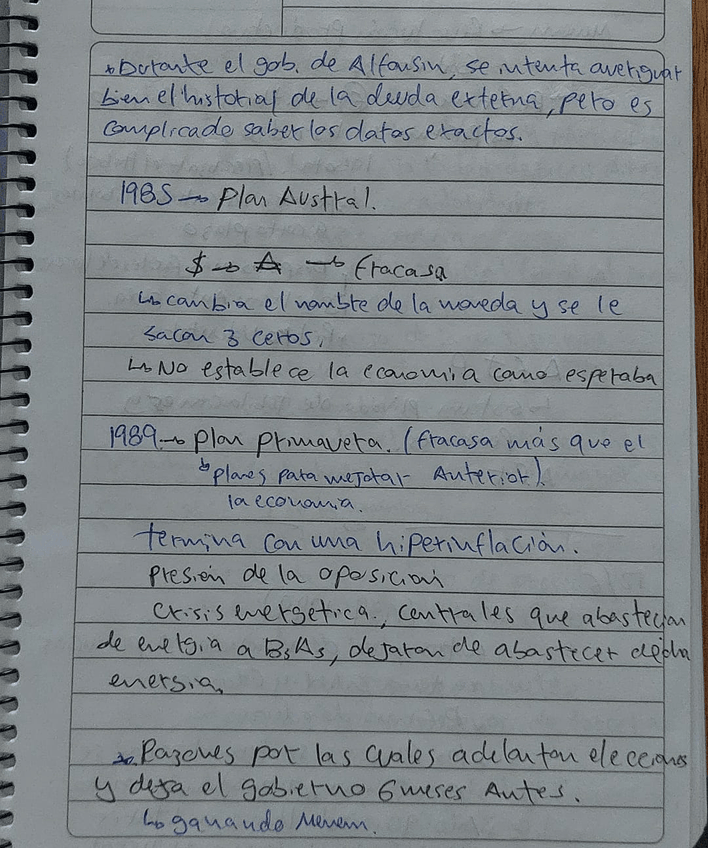 * Durante el gob. de Alfonsin, se intenta averiguar
bien el historial de la deuda externa, pero es
complicado saber los datos exactos.
1985 → Plan Austral.
$ → A → fracasa
↳ cambia el nombre de la moneda y se le
sacan 3 ceros.
↳ No establece la economia como esperaba
1989 → Plan primavera. (fracasa más que el
↳ planes para mejorar Anterior).
la economia.
termina con una hiperinflación.
Presión de la oposición
Crisis energética, centrales que abastecian
de energia a BsAs, dejaron de abastecer dicha
energia.
Razones por las cuales adelantan elecciones
y deja el gobierno 6 meses Antes.
↳ ganando Menem.